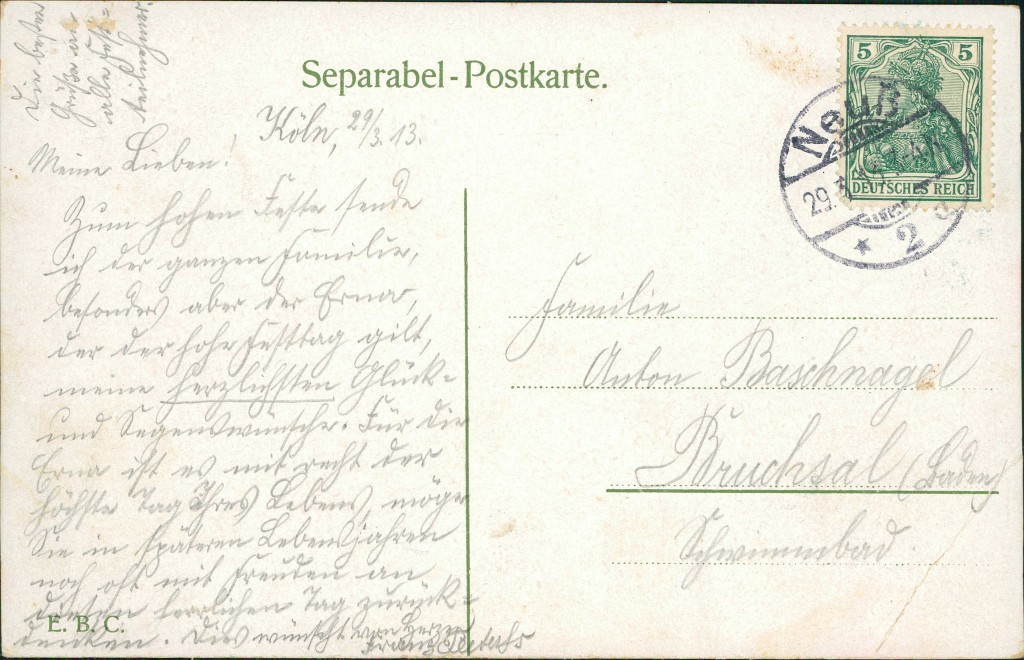 Die besten
Grüße an
alle Fest-
teilnehmer.
Separabel-Postkarte.
Köln, 29/3.13.
Meine Lieben!
Zum hohen Feste sende
ich der ganzen Familie,
besonders aber der Erna,
der der hohe Festtag gilt,
meine herzlichsten Glück-
und Segenswünsche. Für die
Erna ist es mit recht der
höchste Tag Ihres Lebens, möge
Sie in späteren Lebensjahren
noch oft mit Freuden an
diesen herrlichen Tag zurück-
denken. Dies wünscht von Herzen
Franz
E. B. C.
5 5
DEUTSCHES REICH
Neuß
29.3
* 2
Familie
Anton Baschnagel
Bruchsal (Baden)
Schwimmbad.